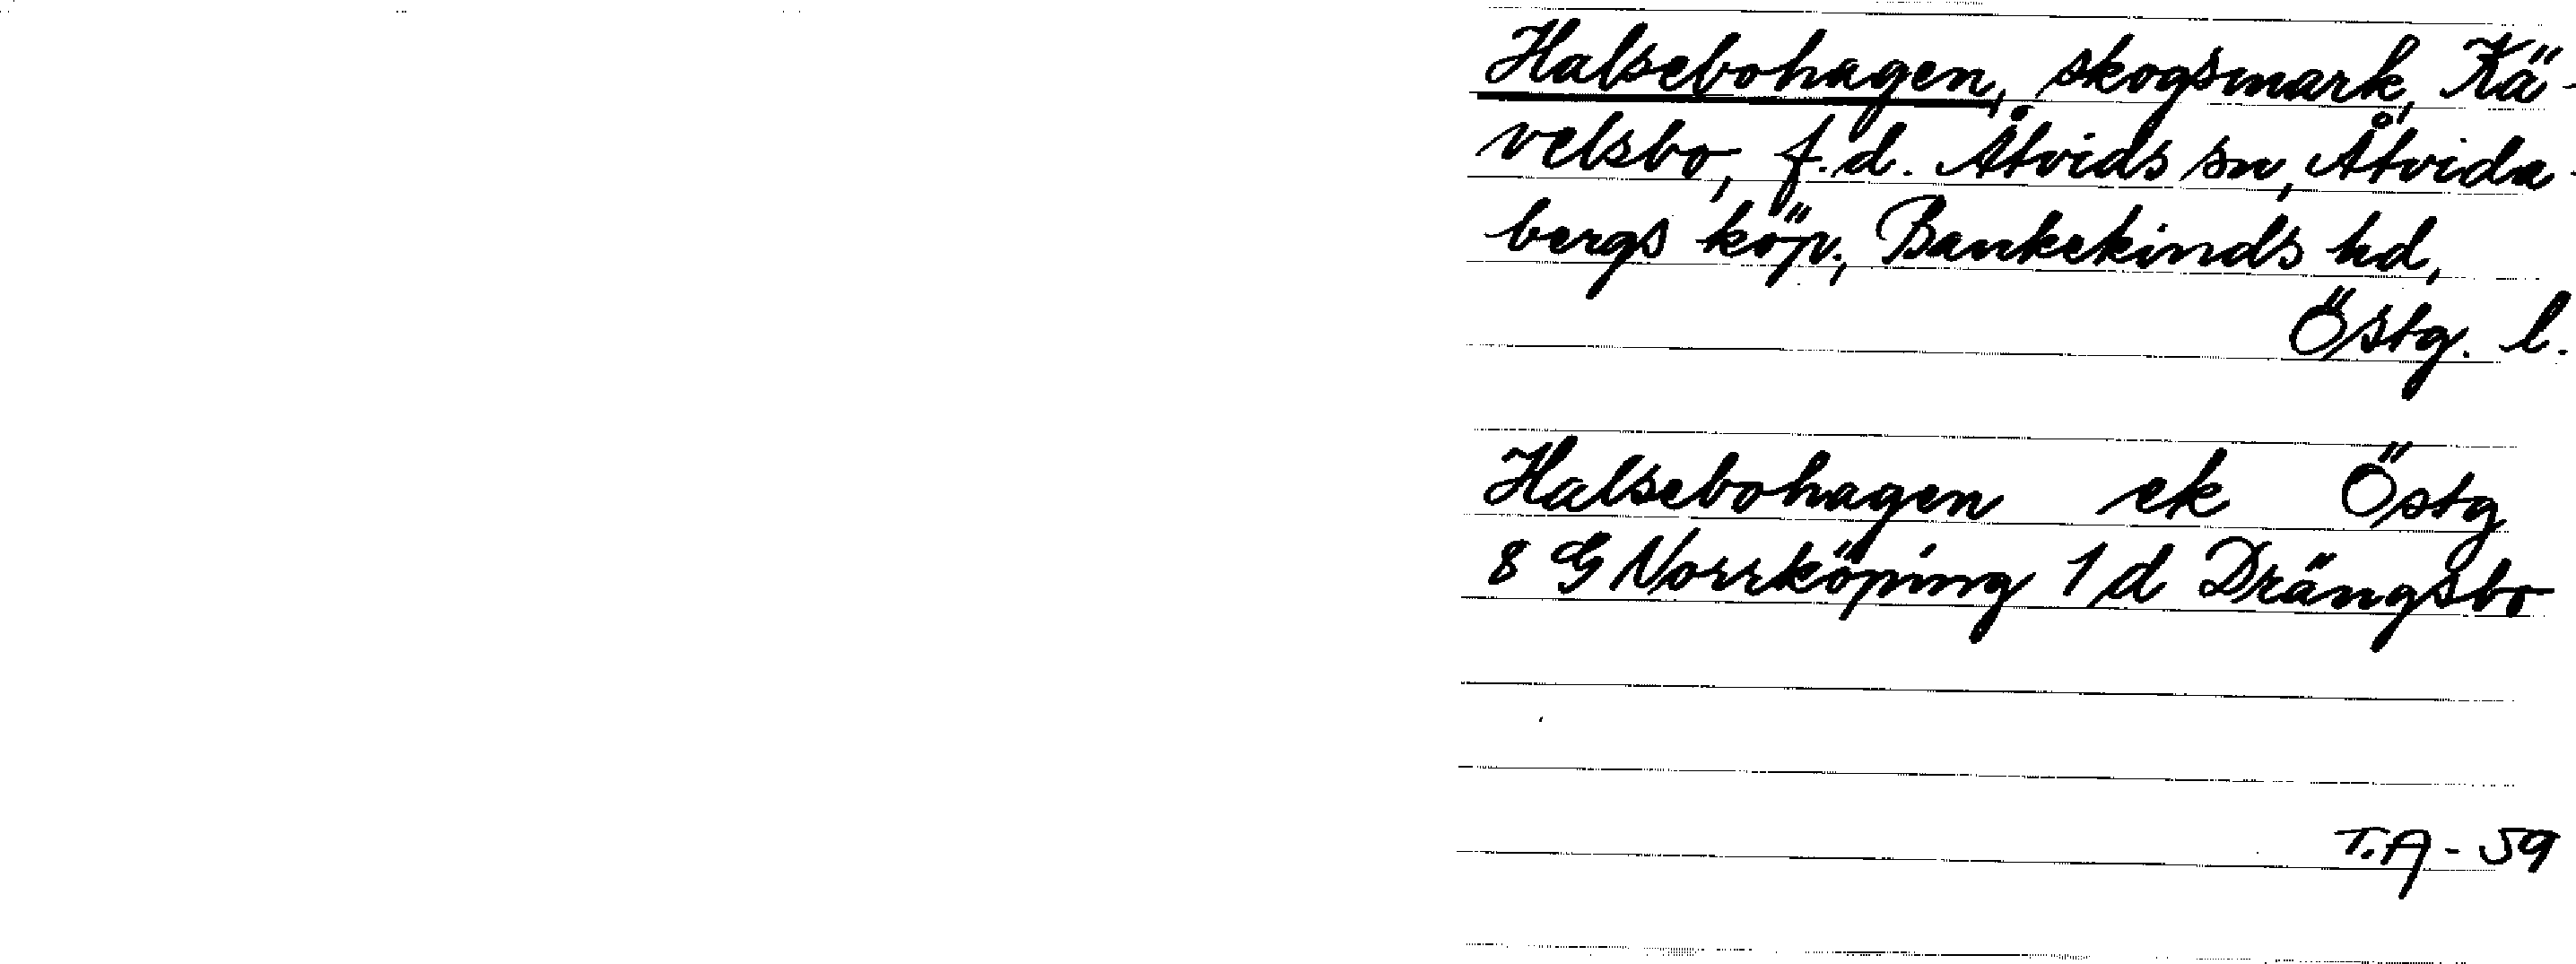 Halsebohagen, skogsmark, Kä-
velsbo, f.d. Åtvids sn, Åtvida-
bergs köp., Bankekinds hd,
Östg. l.
Halsebohagen ek Östg
8 G Norrköping 1 d Drängsbo
T.A - 59